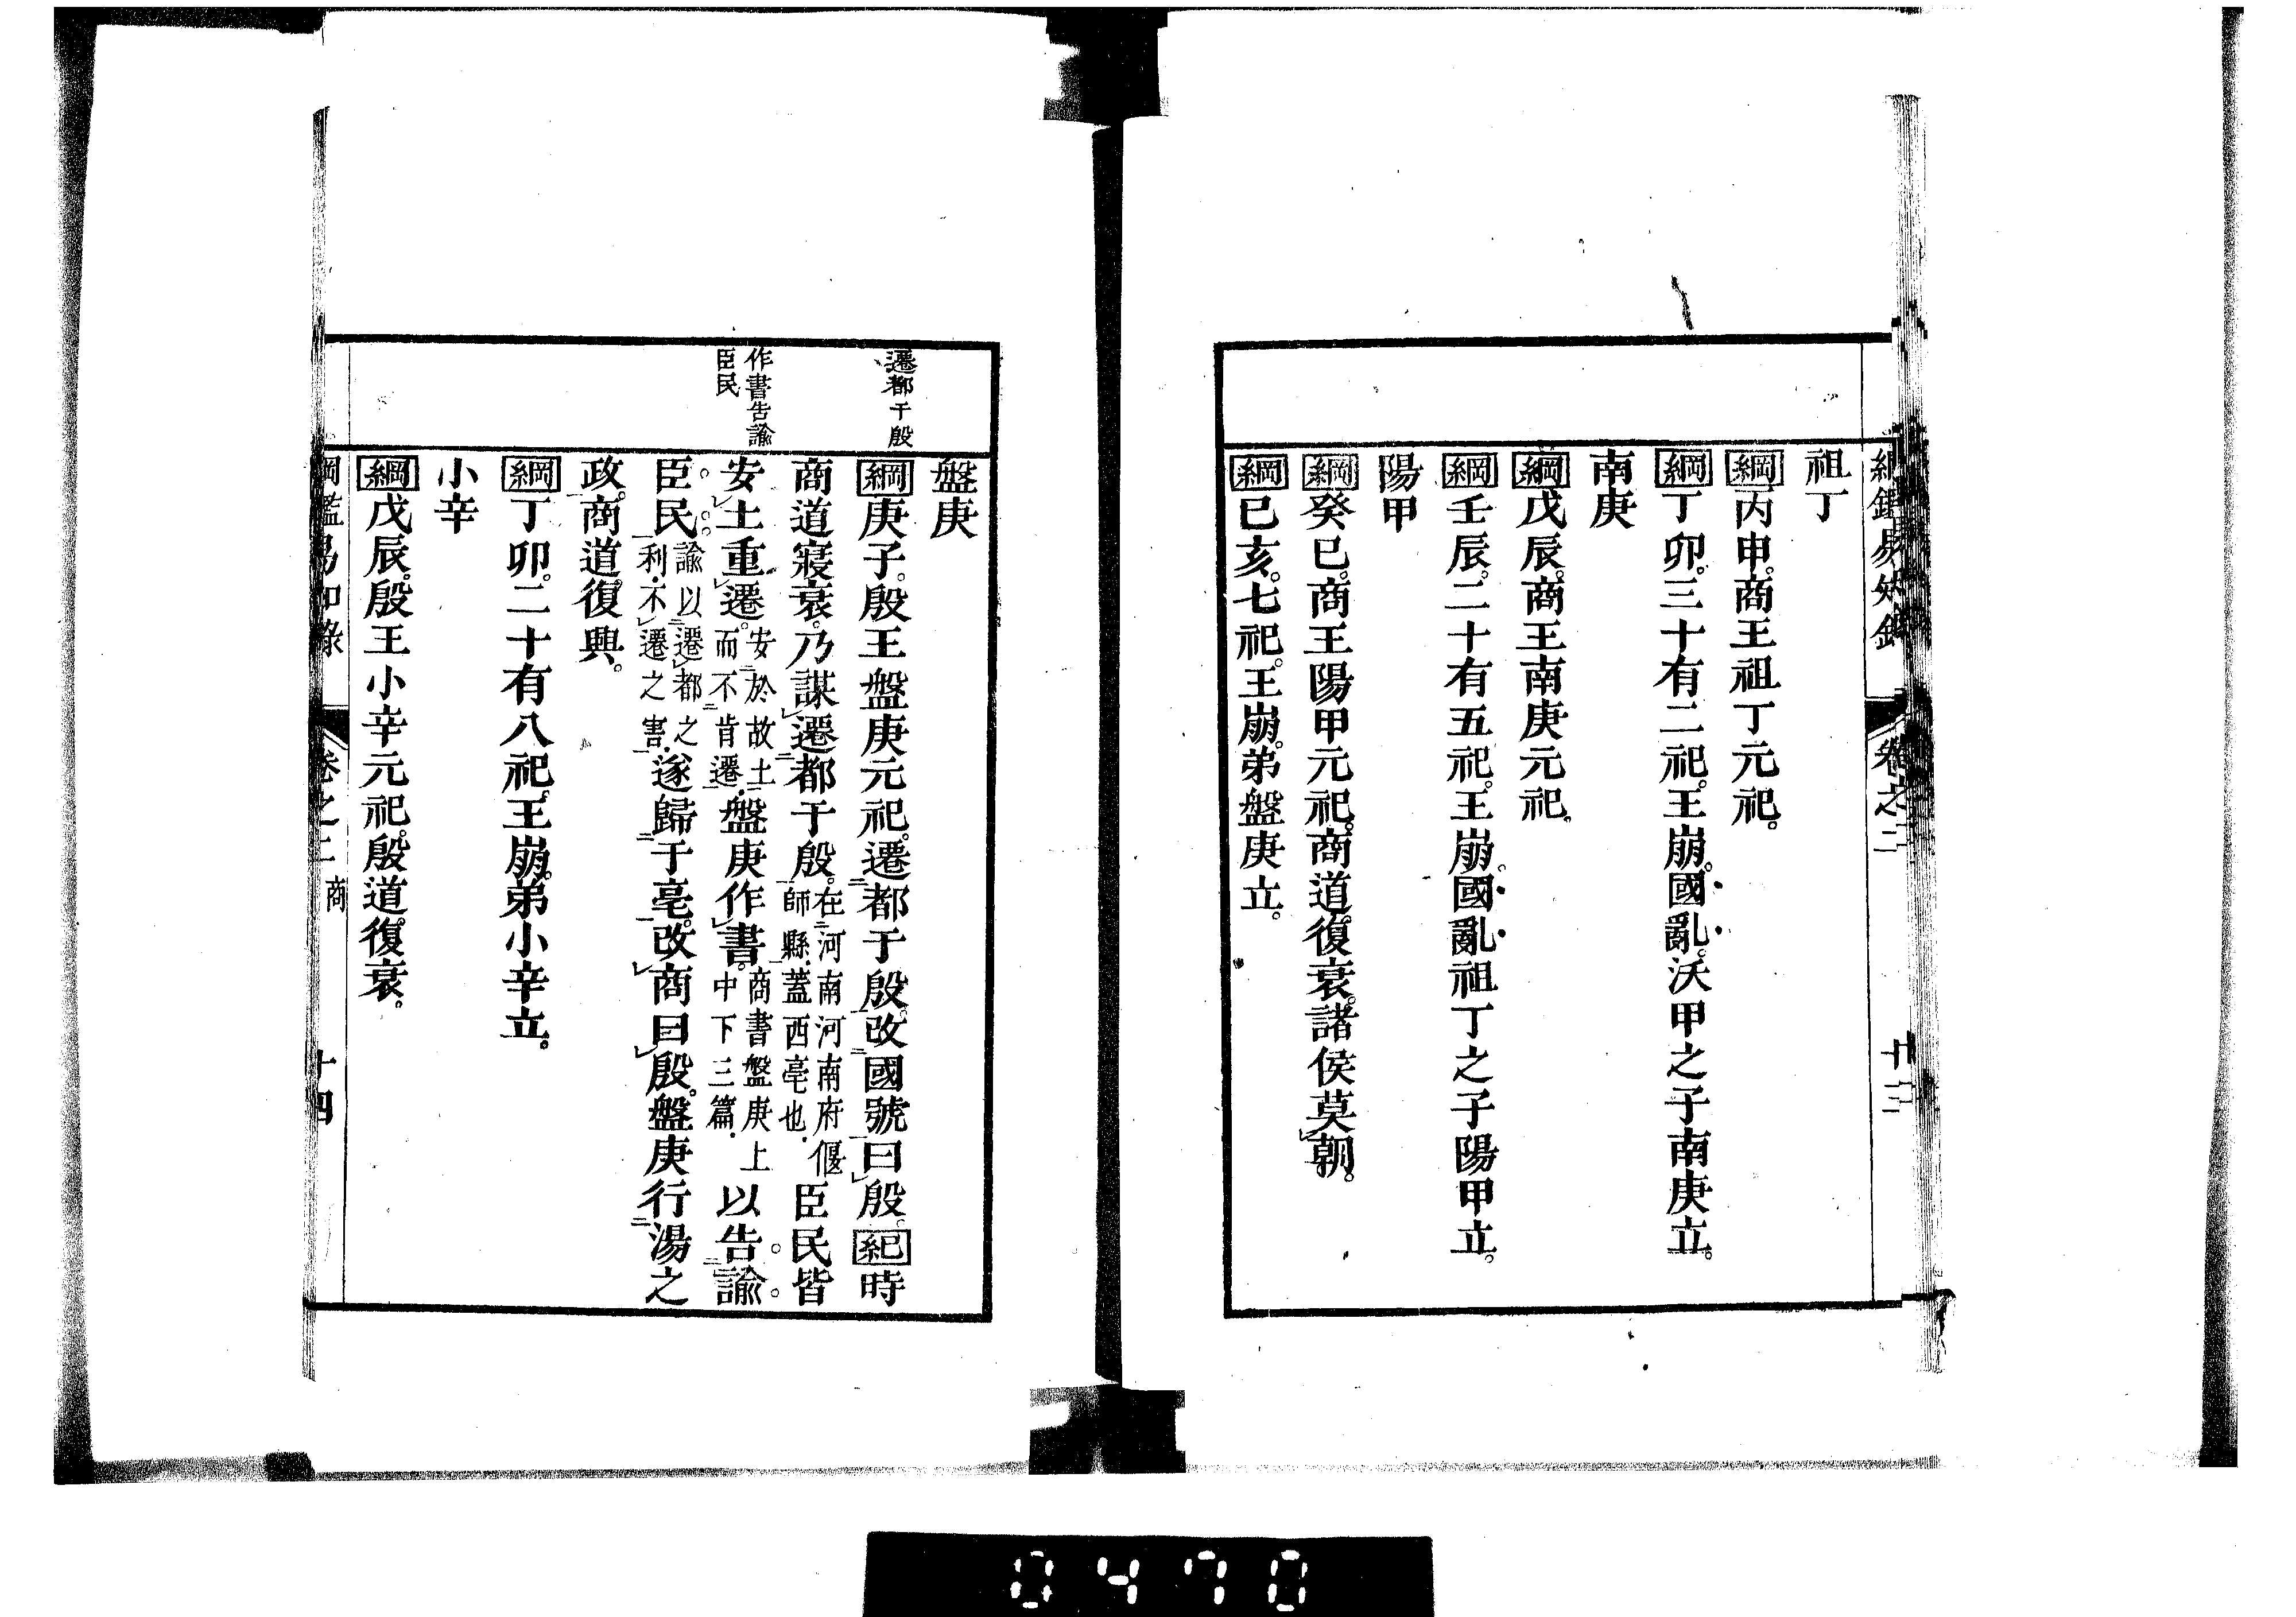 綱鑑易知錄 卷之二
祖丁
綱丙申。商王祖丁元祀。
綱丁卯。三十有二祀。王崩。國亂。沃甲之子南庚立。
南庚
綱戊辰。商王南庚元祀。
綱壬辰。二十有五祀。王崩。國亂祖丁之子陽甲立。
陽甲
綱癸巳。商王陽甲元祀。商道復衰。諸侯莫朝。
綱已亥。七祀。王崩。弟盤庚立。
遷都于殷
作書告諭
臣民
盤庚
綱庚子。殷王盤庚元祀。遷都于殷。改國號曰殷。紀時
商道寖衰。乃謀遷都于殷。在河南河南府偃師縣。蓋西亳也。臣民皆
安土重遷。安於故土而不肯遷。盤庚作書。商書盤庚上中下三篇。以告諭
臣民。諭以遷都之利。不遷之害。遂歸于亳。改商曰殷。盤庚行湯之
政。商道復興。
綱丁卯。二十有八祀。王崩。弟小辛立。
小辛
綱戊辰。殷王小辛元祀。殷道復衰。
綱鑑易知錄 卷之二 商 十四
0470